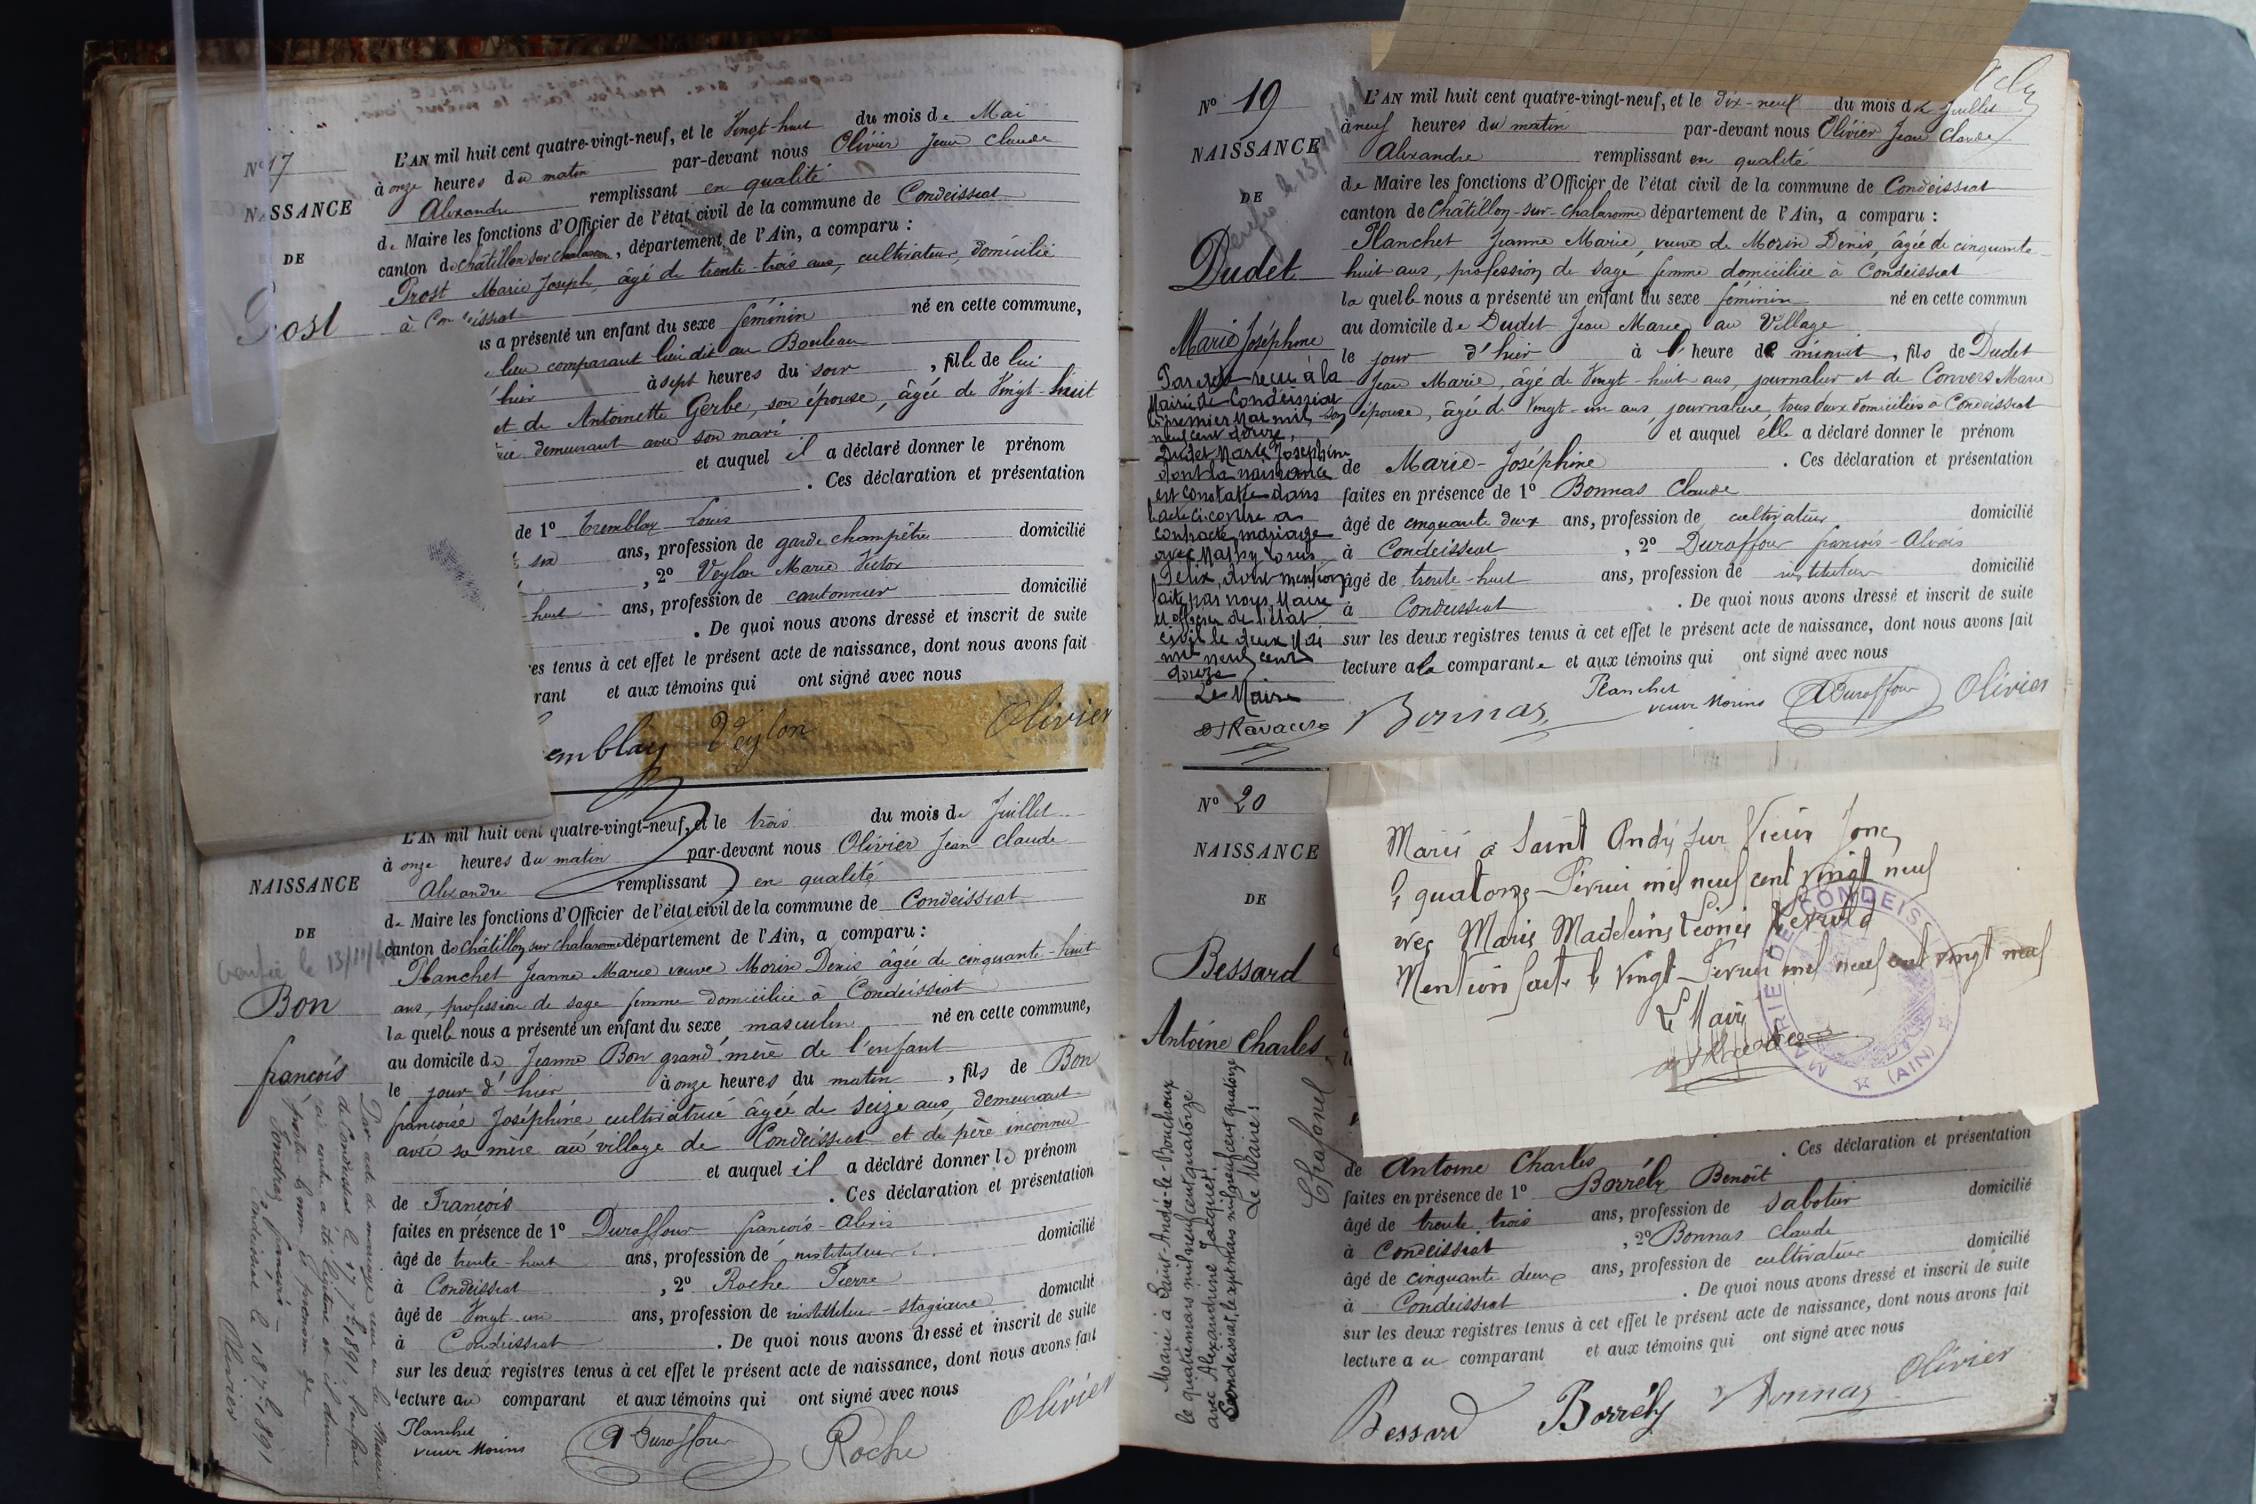 Nº 17
NAISSANCE
DE
L'AN mil huit cent quatre-vingt-neuf, et le Vingt-huit du mois de Mai
à onze heures du matin par-devant nous Olivier Jean Claude
Alexandre remplissant en qualité
de Maire les fonctions d'Officier de l'état civil de la commune de Condeissiat
canton de Châtillon sur Chalaronne, département de l'Ain, a comparu :
Prost Marie Joseph, âgé de trente-trois ans, cultivateur, domicilié
à Condeissiat
us a présenté un enfant du sexe féminin né en cette commune,
lieu comparant lieu dit au Bouleau
hier à sept heures du soir, fille de lui
et de Antoinette Gerbe, son épouse, âgée de Vingt-huit
demeurant avec son mari
et auquel il a déclaré donner le prénom
. Ces déclaration et présentation
de 1º Tremblay Louis
six ans, profession de garde champêtre domicilié
, 2º Veylon Marie Victor
huit ans, profession de cantonnier domicilié
. De quoi nous avons dressé et inscrit de suite
es tenus à cet effet le présent acte de naissance, dont nous avons fait
rant et aux témoins qui ont signé avec nous
emblay Veylon Olivier
NAISSANCE
DE
Bon
françois
L'AN mil huit cent quatre-vingt-neuf, et le trois du mois de Juillet
à onze heures du matin par-devant nous Olivier Jean Claude
Alexandre remplissant en qualité
de Maire les fonctions d'Officier de l'état civil de la commune de Condeissiat
canton de Châtillon sur Chalaronne département de l'Ain, a comparu :
Planchet Jeanne Marie veuve Morin Denis âgée de cinquante-huit
ans, profession de sage femme domiciliée à Condeissiat
la quelle nous a présenté un enfant du sexe masculin né en cette commune,
au domicile de Jeanne Bon grand'mère de l'enfant
le jour d'hier à onze heures du matin, fils de Bon
françoise Joséphine cultivatrice âgée de seize ans, demeurant
avec sa mère au village de Condeissiat et de père inconnu
et auquel il a déclaré donner le prénom
de François . Ces déclaration et présentation
faites en présence de 1º Duraffour françois-Alexis
âgé de trente-huit ans, profession de instituteur domicilié
à Condeissiat , 2º Roche Pierre
âgé de Vingt un ans, profession de instituteur-stagiaire domicilié
à Condeissiat . De quoi nous avons dressé et inscrit de suite
sur les deux registres tenus à cet effet le présent acte de naissance, dont nous avons fait
lecture au comparant et aux témoins qui ont signé avec nous
Planchet
veuve Morins Duraffour Roche Olivier
Par acte de mariage reçu en la Mairie
de Condeissiat le 17 7bre 1891, l'enfant
ci contre a été légitimé et il devra
porter le nom et prénom de
françois
Condeissiat le 18 7bre 1891
Olivier
Nº 19
NAISSANCE
DE
Dudet
Marie Joséphine
Par acte reçu à la
Mairie de Condeissiat
le premier Mai mil
neuf cent douze,
Dudet Marie Joséphine
dont la naissance
est constatée dans
l'acte ci-contre a
contracté mariage
avec Mathy Louis
Félix, dont mention
faite par nous, Maire
et officier de l'état
civil le deux Mai
mil neuf cent
douze
Le Maire
L'AN mil huit cent quatre-vingt-neuf, et le dix-neuf du mois de Juillet
à neuf heures du matin par-devant nous Olivier Jean Claude
Alexandre remplissant en qualité
de Maire les fonctions d'Officier de l'état civil de la commune de Condeissiat
canton de Châtillon-sur-Chalaronne département de l'Ain, a comparu :
Planchet Jeanne Marie, veuve de Morin Denis, âgée de cinquante-
huit ans, profession de sage femme domiciliée à Condeissiat
la quelle nous a présenté un enfant du sexe féminin né en cette commun
au domicile de Dudet Jean Marie au Village
le jour d'hier à l'heure de minuit, fils de Dudet
Jean Marie, âgé de Vingt-huit ans, journalier et de Convers Marie
son épouse, âgée de Vingt-un ans, journalière, tous deux domiciliés à Condeissiat
et auquel elle a déclaré donner le prénom
de Marie-Joséphine . Ces déclaration et présentation
faites en présence de 1º Bonnas Claude
âgé de cinquante deux ans, profession de cultivateur domicilié
à Condeissiat , 2º Duraffour françois-Alexis
âgé de trente-huit ans, profession de instituteur domicilié
à Condeissiat . De quoi nous avons dressé et inscrit de suite
sur les deux registres tenus à cet effet le présent acte de naissance, dont nous avons fait
lecture à la comparante et aux témoins qui ont signé avec nous
Bonnas Planchet
veuve Morins Duraffour Olivier
Nº 20
NAISSANCE
DE
Bessard
Antoine Charles
Marié à Saint-André-le-Bouchoux
le quatre mars mil neuf cent quatorze
avec Alexandrine Jacquet.
Condeissiat, le sept mars mil neuf cent quatorze
Le Maire :
Chafanel
Marié à Saint André sur Vieux Jonc
le quatorze Février mil neuf cent vingt neuf
avec Marie Madeleine Léonie
Mention faite le vingt Février mil neuf cent vingt neuf
Le Maire
MAIRIE DE CONDEISSIAT (AIN)
de Antoine Charles . Ces déclaration et présentation
faites en présence de 1º Borrély Benoît
âgé de trente trois ans, profession de sabotier domicilié
à Condeissiat , 2º Bonnas Claude
âgé de cinquante deux ans, profession de cultivateur domicilié
à Condeissiat . De quoi nous avons dressé et inscrit de suite
sur les deux registres tenus à cet effet le présent acte de naissance, dont nous avons fait
lecture au comparant et aux témoins qui ont signé avec nous
Bessard Borrély Bonnas Olivier